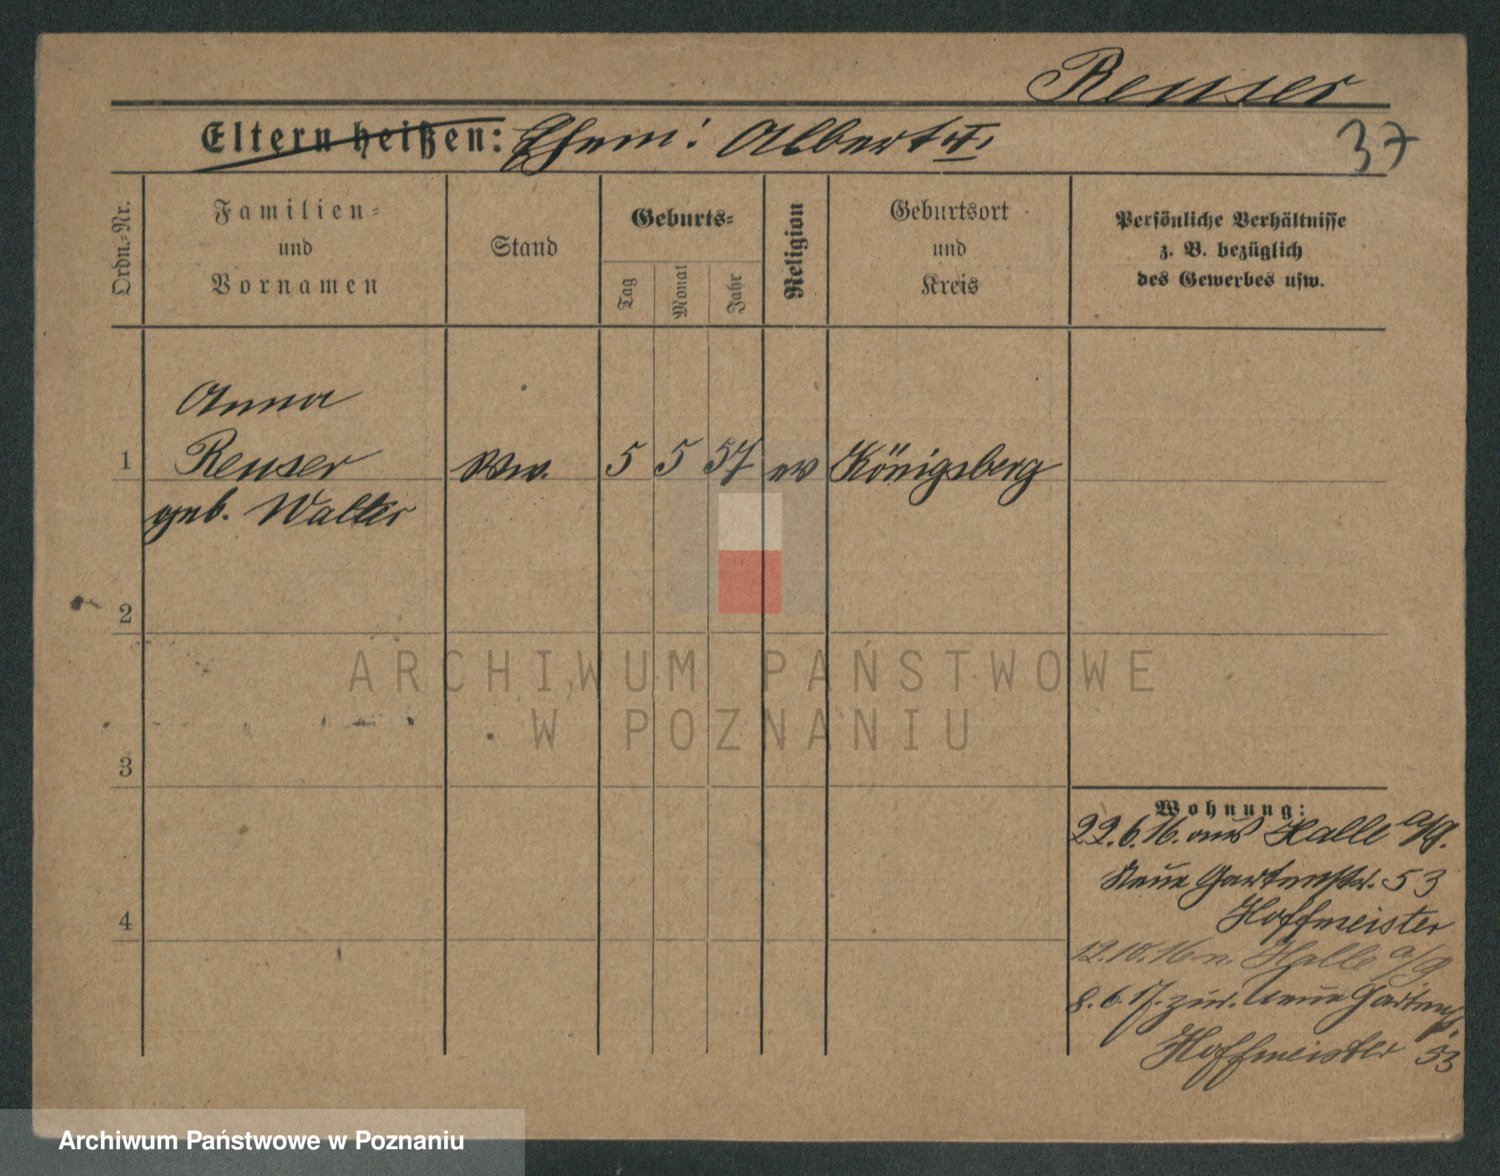 Reuser
Eltern heißen: Ehem: Albert †.
37
Ordn.-Nr.
Familien-
und
Vornamen
Stand
Geburts-
Tag
Monat
Jahr
Religion
Geburtsort
und
Kreis
Persönliche Verhältnisse
z. B. bezüglich
des Gewerbes usw.
Anna
1 Reuser Ww. 5 5 57 ev Königsberg
geb. Walter
2
ARCHIWUM PAŃSTWOWE
W POZNANIU
3
Wohnung:
22.6.16. aus Halle a/S.
Neue Gartenstr. 53
Hoffmeister
4
12.10.16 n. Halle a/S
8.6.17. zur. Neue Gartenst.
Hoffmeister 53
Archiwum Państwowe w Poznaniu